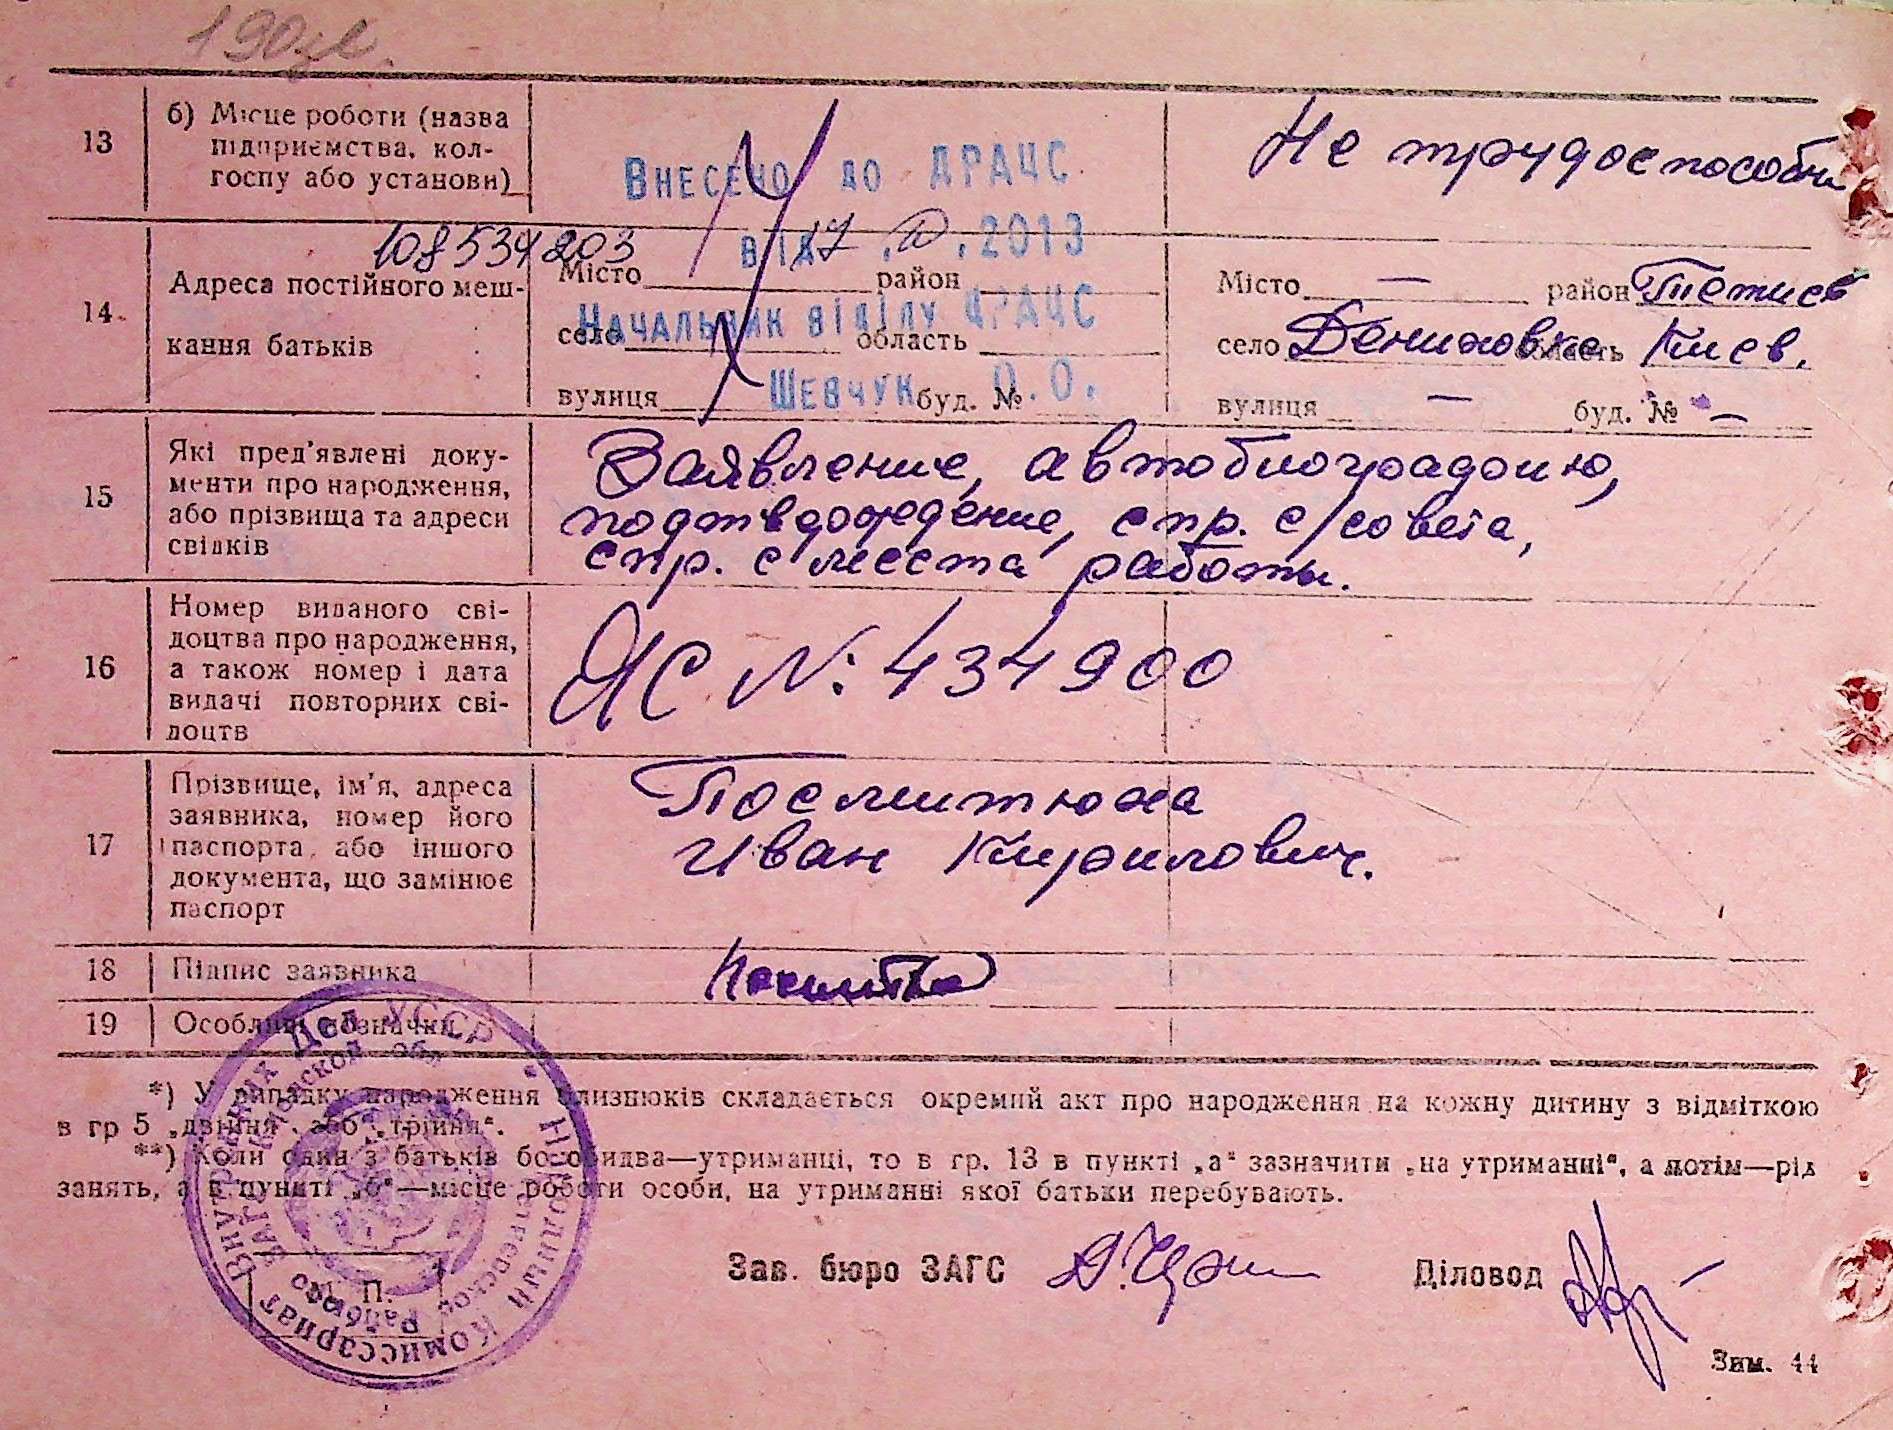 13
б) Місце роботи (назва
підприємства, кол-
госпу або установи)
Внесено до ДРАЦС
Не трудоспособн
108534203
від 17. IV .2013
14
Адреса постійного меш-
кання батьків
Місто район
село область
вулиця буд. №
Начальник відділу ДРАЦС
Шевчук О.О.
Місто — район Тетиев
село Дениховка область Киев.
вулиця — буд. № —
15
Які пред'явлені доку-
менти про народження,
або прізвища та адреси
свідків
Заявление, автобиографию,
подтверждение, спр. с/совета,
спр. с места работы.
16
Номер виданого сві-
доцтва про народження,
а також номер і дата
видачі повторних сві-
доцтв
ЯС №: 434900
17
Прізвище, ім'я, адреса
заявника, номер його
паспорта, або іншого
документа, що замінює
паспорт
Посмитюха
Иван Кирилович.
18
Підпис заявника
19
Особливі позначки
*) У випадку народження близнюків складається окремий акт про народження на кожну дитину з відміткою
в гр 5 „двійня“, або „трійня“.
**) Коли один з батьків бо обидва—утриманці, то в гр. 13 в пункті „а“ зазначити „на утриманні“, а потім—рід
занять, а в пункті „б“—місце роботи особи, на утриманні якої батьки перебувають.
Народный Комиссариат Внутренних Дел УССР
Киевской обл
ЗАГС
М. П.
Зав. бюро ЗАГС
Діловод
Зим. 44